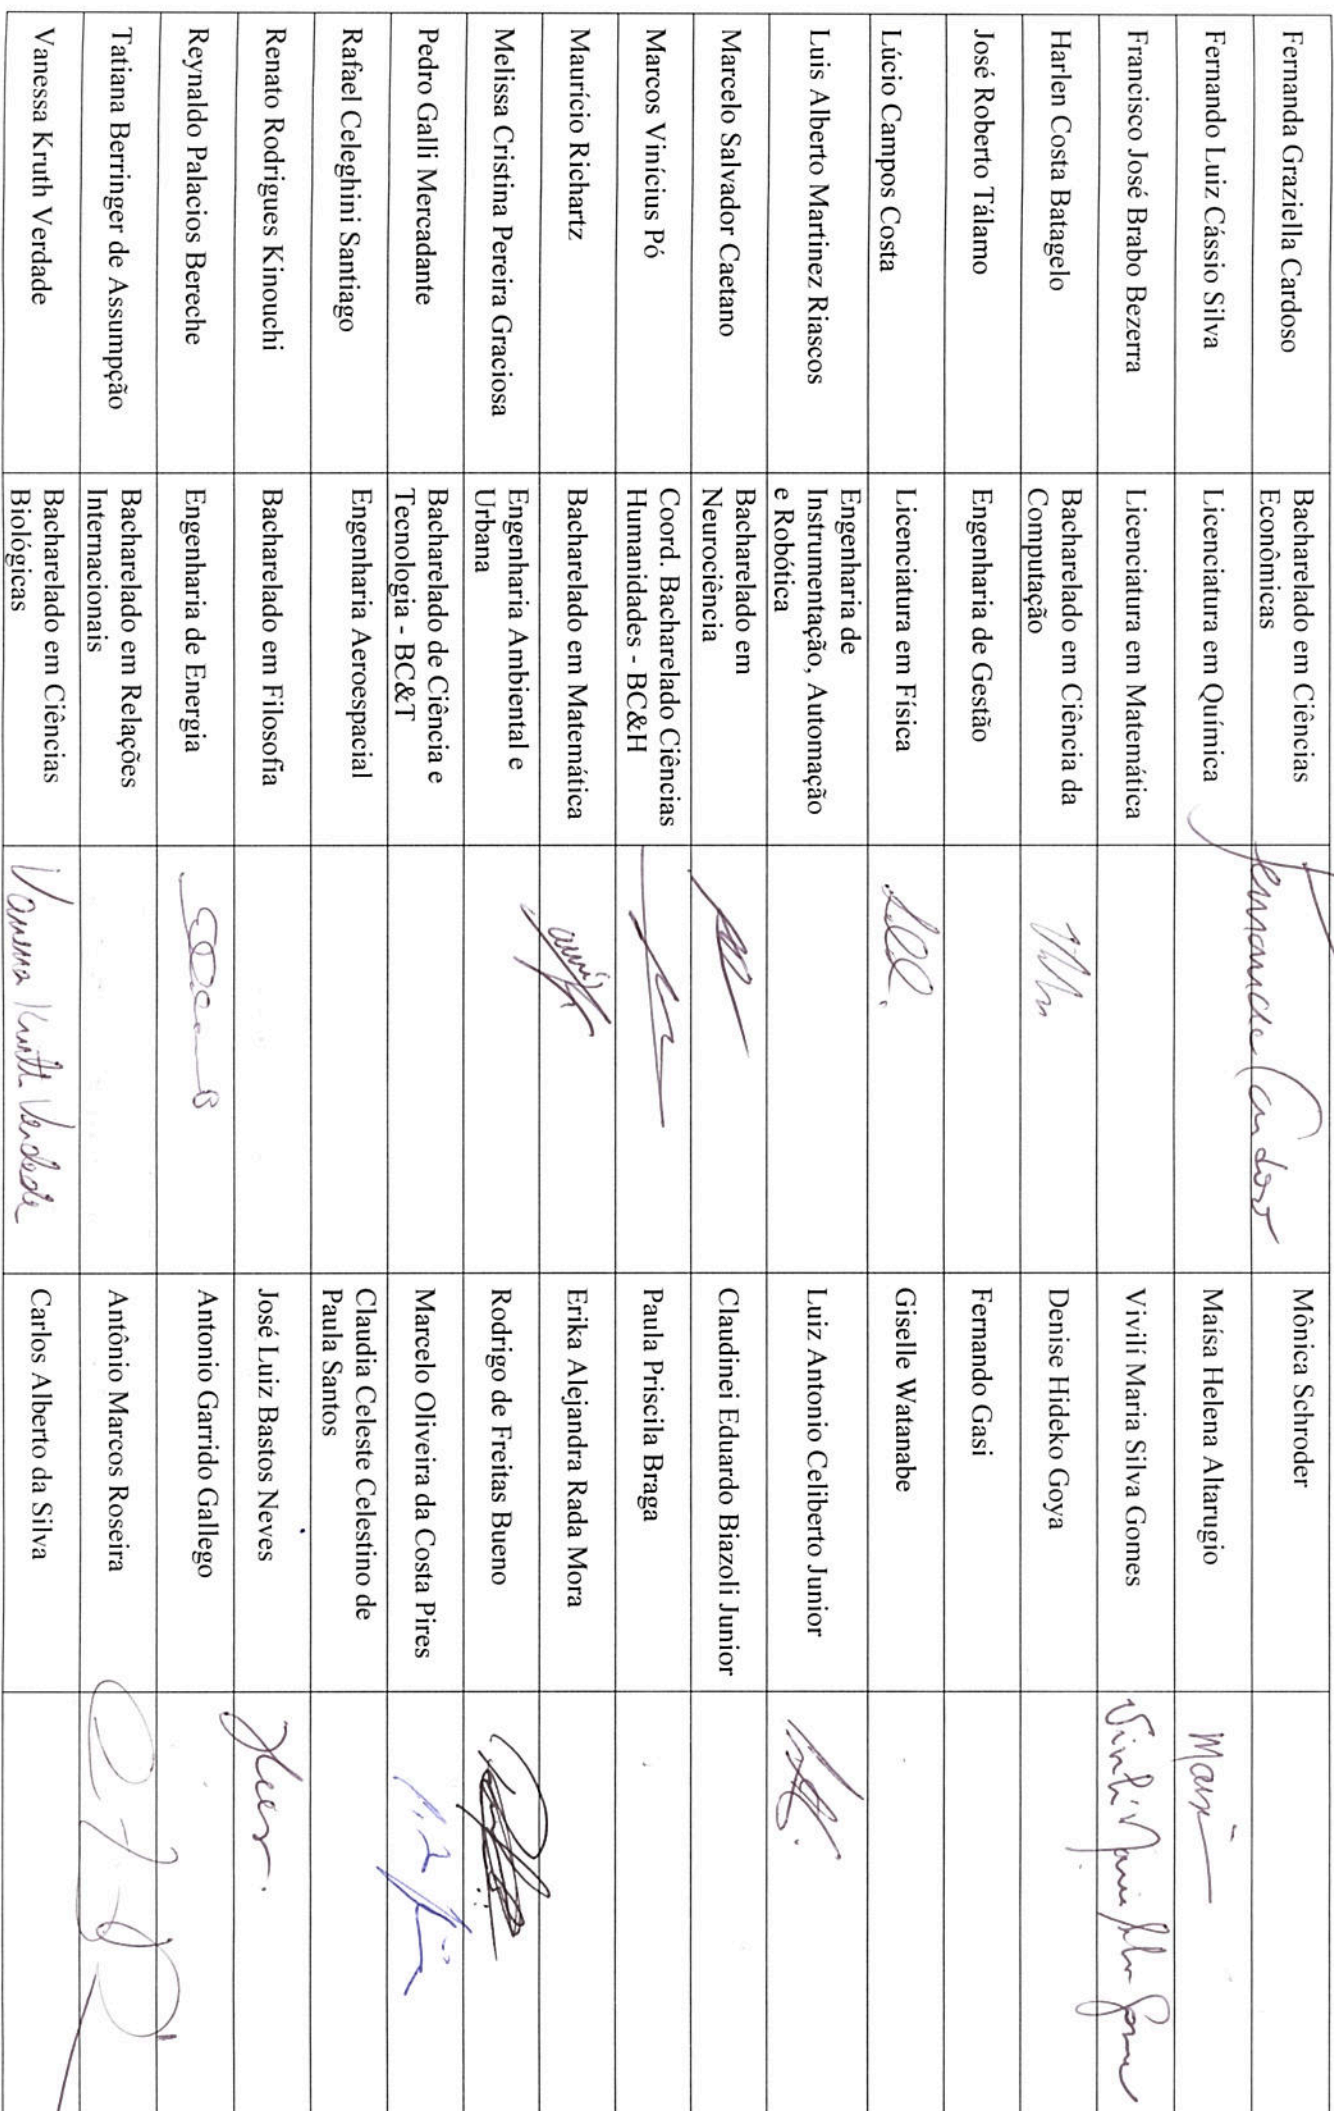 Fernanda Graziella Cardoso
Bacharelado em Ciências
Econômicas
Fernanda Cardoso
Mônica Schroder
Fernando Luiz Cássio Silva
Licenciatura em Química
Maísa Helena Altarugio
Francisco José Brabo Bezerra
Licenciatura em Matemática
Vivilí Maria Silva Gomes
Vivilí Maria Silva Gomes
Harlen Costa Batagelo
Bacharelado em Ciência da
Computação
Denise Hideko Goya
José Roberto Tálamo
Engenharia de Gestão
Fernando Gasi
Lúcio Campos Costa
Licenciatura em Física
Giselle Watanabe
Luis Alberto Martinez Riascos
Engenharia de
Instrumentação, Automação
e Robótica
Luiz Antonio Celiberto Junior
Marcelo Salvador Caetano
Bacharelado em
Neurociência
Claudinei Eduardo Biazoli Junior
Marcos Vinícius Pó
Coord. Bacharelado Ciências
Humanidades - BC&H
Paula Priscila Braga
Maurício Richartz
Bacharelado em Matemática
Erika Alejandra Rada Mora
Melissa Cristina Pereira Graciosa
Engenharia Ambiental e
Urbana
Rodrigo de Freitas Bueno
Pedro Galli Mercadante
Bacharelado de Ciência e
Tecnologia - BC&T
Marcelo Oliveira da Costa Pires
Rafael Celeghini Santiago
Engenharia Aeroespacial
Claudia Celeste Celestino de
Paula Santos
Renato Rodrigues Kinouchi
Bacharelado em Filosofia
José Luiz Bastos Neves
Reynaldo Palacios Bereche
Engenharia de Energia
Antonio Garrido Gallego
Tatiana Berringer de Assumpção
Bacharelado em Relações
Internacionais
Antônio Marcos Roseira
Vanessa Kruth Verdade
Bacharelado em Ciências
Biológicas
Vanessa Kruth Verdade
Carlos Alberto da Silva